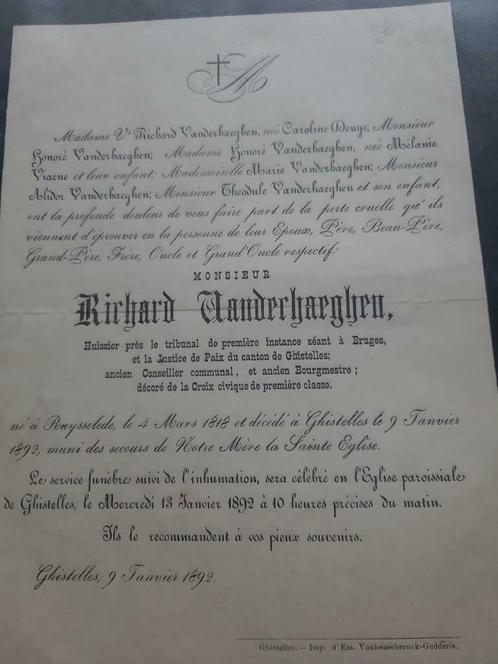 Madame Ve Richard Vanderhaeghen, née Caroline Denys; Monsieur
Honoré Vanderhaeghen; Madame Honoré Vanderhaeghen, née Mélanie
Viaene et leur enfant; Mademoiselle Marie Vanderhaeghen; Monsieur
Alidor Vanderhaeghen; Monsieur Théodule Vanderhaeghen et son enfant,
ont la profonde douleur de vous faire part de la perte cruelle qu'ils
viennent d'éprouver en la personne de leur Epoux, Père, Beau-Père,
Grand-Père, Frère, Oncle et Grand'Oncle respectif:
MONSIEUR
Richard Vanderhaeghen,
Huissier près le tribunal de première instance séant à Bruges,
et la Justice de Paix du canton de Ghistelles;
ancien Conseiller communal, et ancien Bourgmestre;
décoré de la Croix civique de première classe.
né à Ruysselede, le 4 Mars 1818 et décédé à Ghistelles le 9 Janvier
1892, muni des secours de Notre Mère la Sainte Eglise.
Le service funèbre suivi de l'inhumation, sera célébré en l'Eglise paroissiale
de Ghistelles, le Mercredi 13 Janvier 1892 à 10 heures précises du matin.
Ils le recommandent à vos pieux souvenirs.
Ghistelles, 9 Janvier 1892.
Ghistelles.— Imp. d'Em. Vanhensebrouck-Godderis.